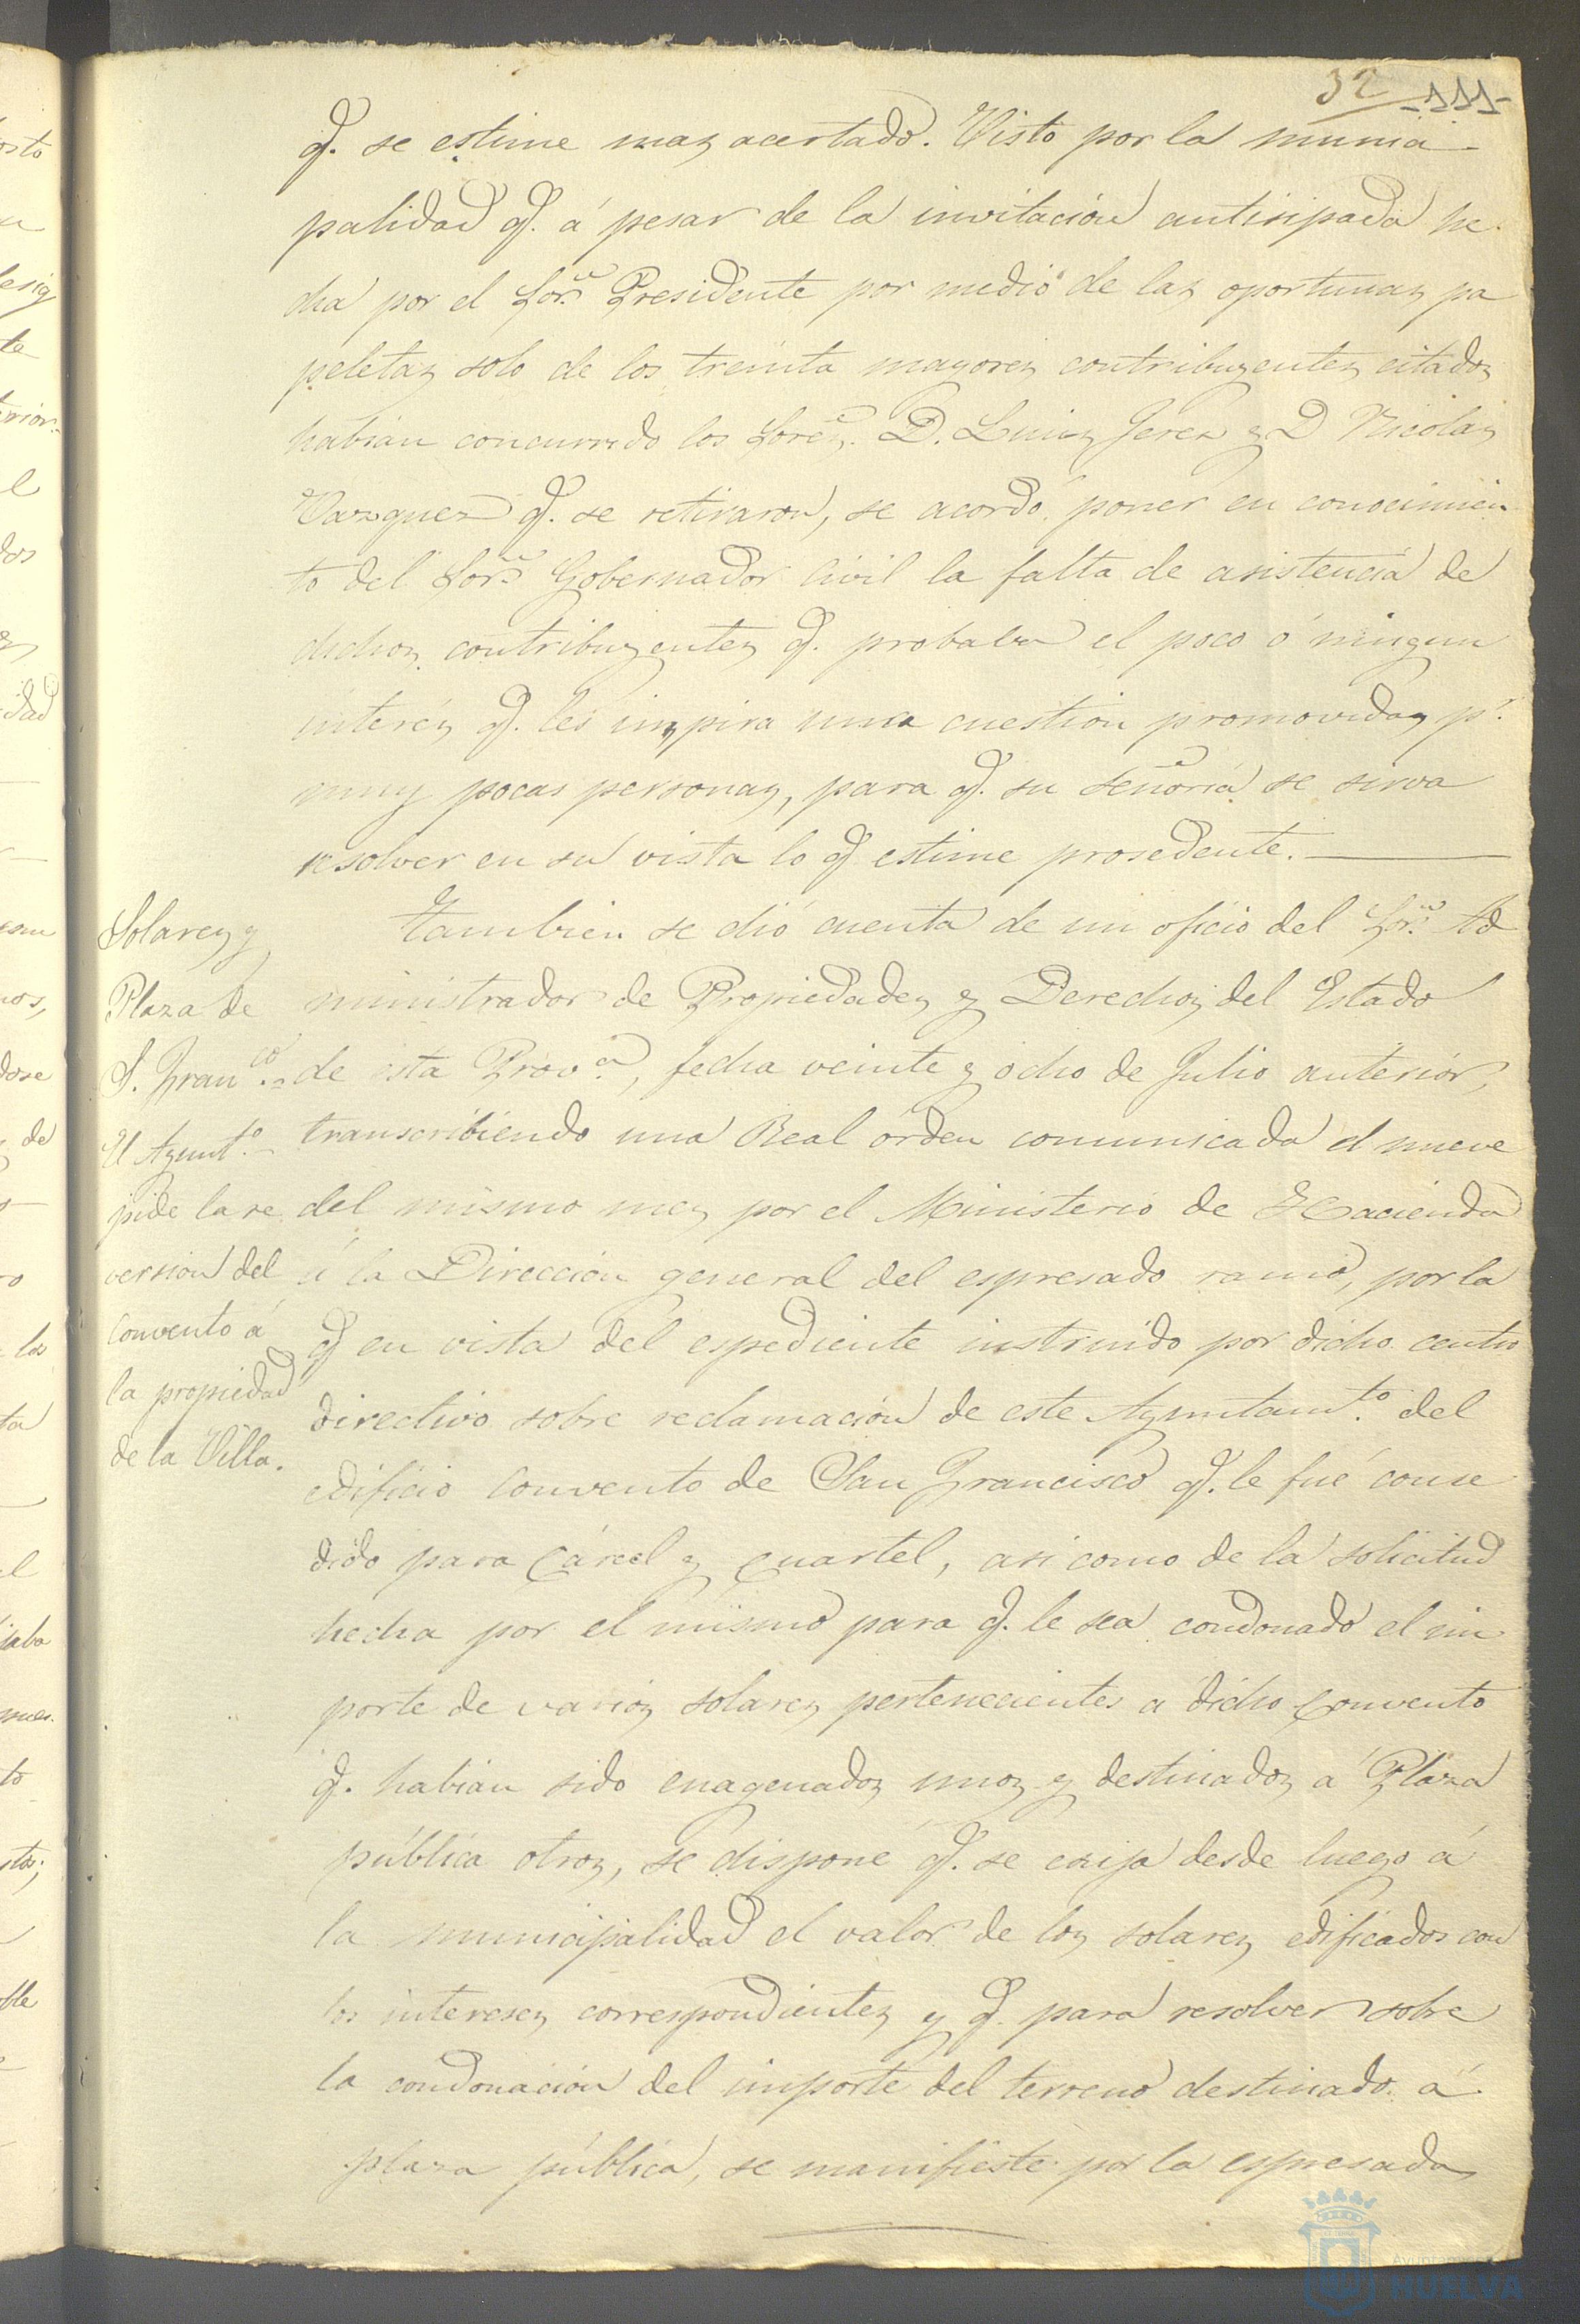 32 -111-
q. se estime mas acertado. Visto por la munici-
palidad q. á pesar de la invitacion antisipada he-
cha por el Sor. Presidente por medio de las oportunas pa
peletas solo de los treinta mayores contribuyentes citados
habian concurrido los Sores. D. Luis Jerez y D Nicolas
Vazquez q. se retiraron, se acordó poner en conocimien
to del Sor. Gobernador Civil la falta de asistencia de
dichos contribuyentes q. probaba el poco ó ningun
interés q. les inspira una cuestion promovida p.r
muy pocas personas, para q. su Señoria se sirva
resolver en su vista lo q estime prosedente.
Solares y
Plaza de
S. Fran.co
El Ayunt.o
pide la re
version del
Convento á
la propiedad
de la Villa.
Tambien se dió cuenta de un oficio del Sor. Ad
ministrador de Propiedades y Derechos del Estado
de esta Prov.a, fecha veinte y ocho de Julio anterior,
transcribiendo una Real órden comunicada el nueve
del mismo mes por el Ministerio de Hacienda
á la Direccion general del espresado ramo, por la
q en vista del espediente instruido por dicho centro
directivo sobre reclamacion de este Ayuntam.to del
edificio Convento de San Francisco q. le fué conse
dido para Cárcel y Cuartel, asi como de la solicitud
hecha por el mismo para q. le sea condonado el im
porte de varios solares pertenecientes a dicho Convento
q. habian sido enagenados unos y destinados á Plaza
pública otros, se dispone q. se exija desde luego á
la municipalidad el valor de los solares edificados con
los intereses correspondientes y q. para resolver sobre
la condonacion del importe del terreno destinado á
plaza pública, se manifieste por la espresada
HUELVA